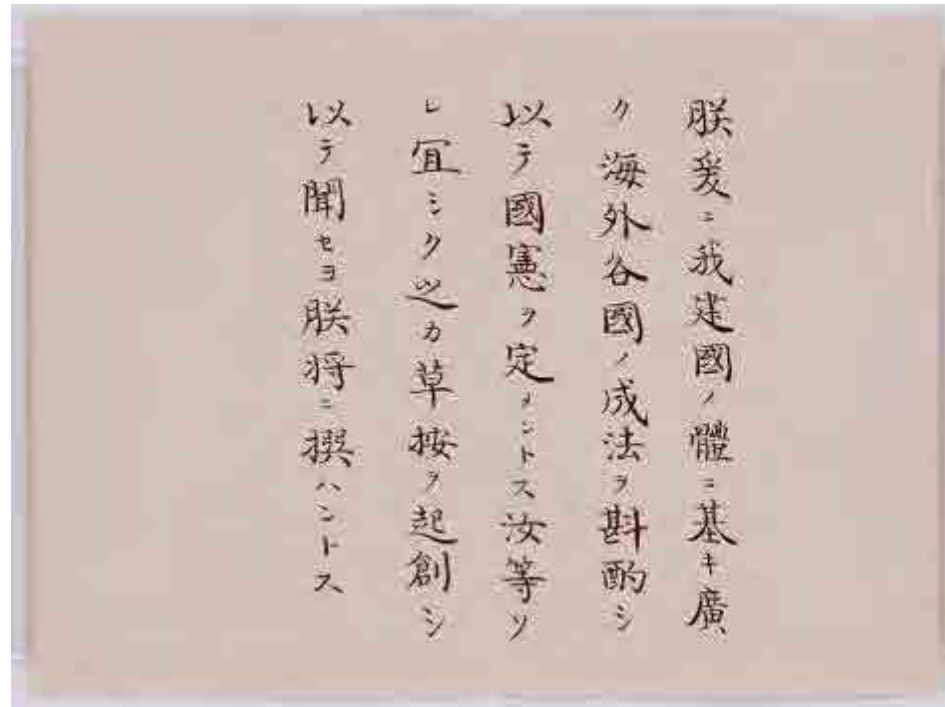 朕爰ニ我建國ノ體ニ基キ廣
ク海外各國ノ成法ヲ斟酌シ
以テ國憲ヲ定メントス汝等ソ
レ宜シク之カ草按ヲ起創シ
以テ聞セヨ朕將ニ撰ハントス